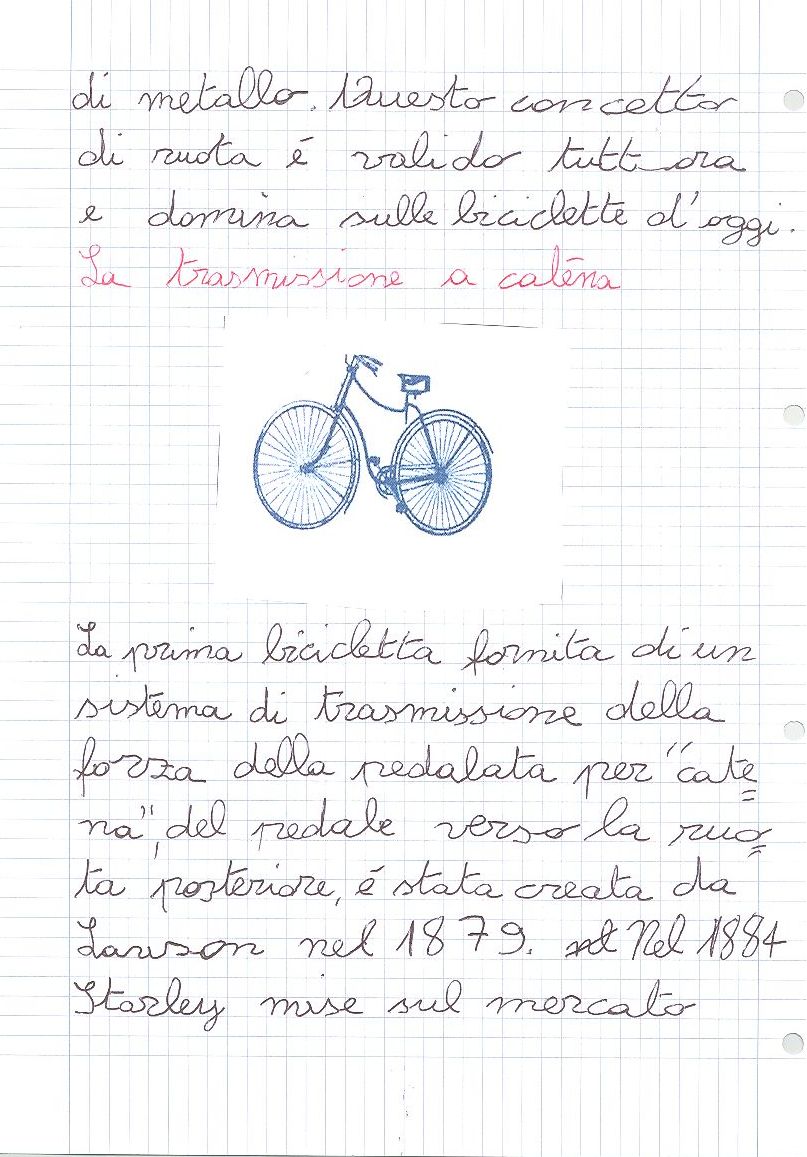 di metallo. Questo concetto
di ruota é valido tutt ora
e domina sulle biciclette d'oggi.
La trasmissione a catena
La prima bicicletta fornita di un
sistema di trasmissione della
forza della pedalata per "cate=
na", del pedale verso la ruo=
ta posteriore, é stata creata da
Lawson nel 1879. Nel 1884
Starley mise sul mercato